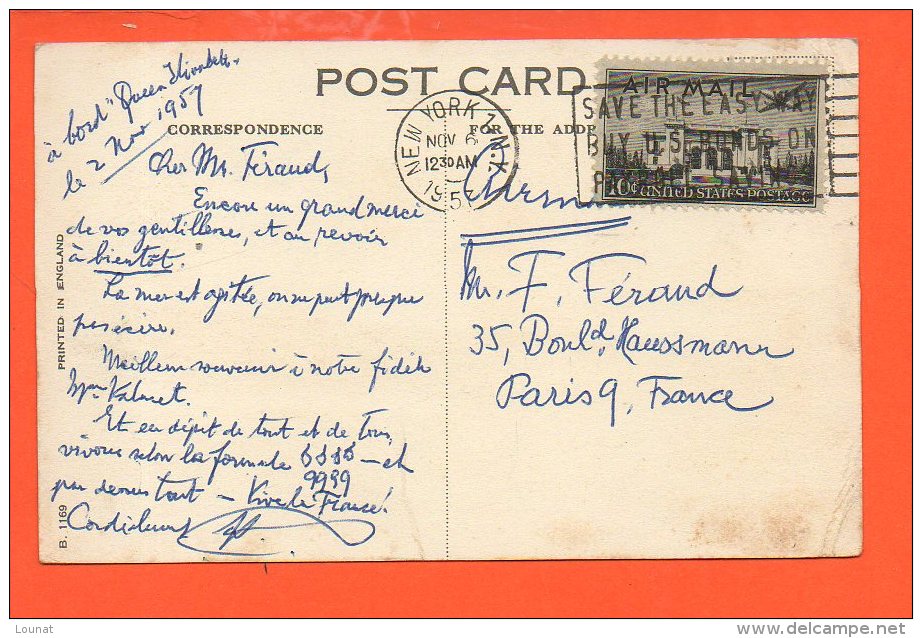 à bord "Queen Elizabeth"
le 2 Nov 1957
POST CARD
CORRESPONDENCE
FOR THE ADDR
NEW YORK 1 N.Y.
NOV 6
1230 AM
1957
AIR MAIL
SAVE THE EASY WAY
BUY U.S. BONDS ON
10¢ UNITED STATES POSTAGE
Cher Mr. Féraud,
Encore un grand merci
de vos gentillesses, et au revoir
à bientôt.
La mer est agitée, on ne peut presque
pas écrire.
Meilleur souvenir à notre fidèle
Mme
Et en dépit de tout et de tous,
vivons selon la formule SSSS - et
9999
par dessus tout - Vive la France!
Cordialement
Mr. F. Féraud
35, Bould. Haussmann
Paris 9, France
PRINTED IN ENGLAND
B. 1169
Lounat
www.delcampe.net